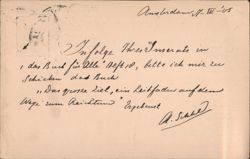 Amsterdam,
Infolge Ihres Inserats in
„das Buch für Alle" bitte ich mir zu
Schicken das Buch
„Das grosse Ziel, ein Leitfaden auf dem
Wege zum Reichtum" Ergebenst
A.